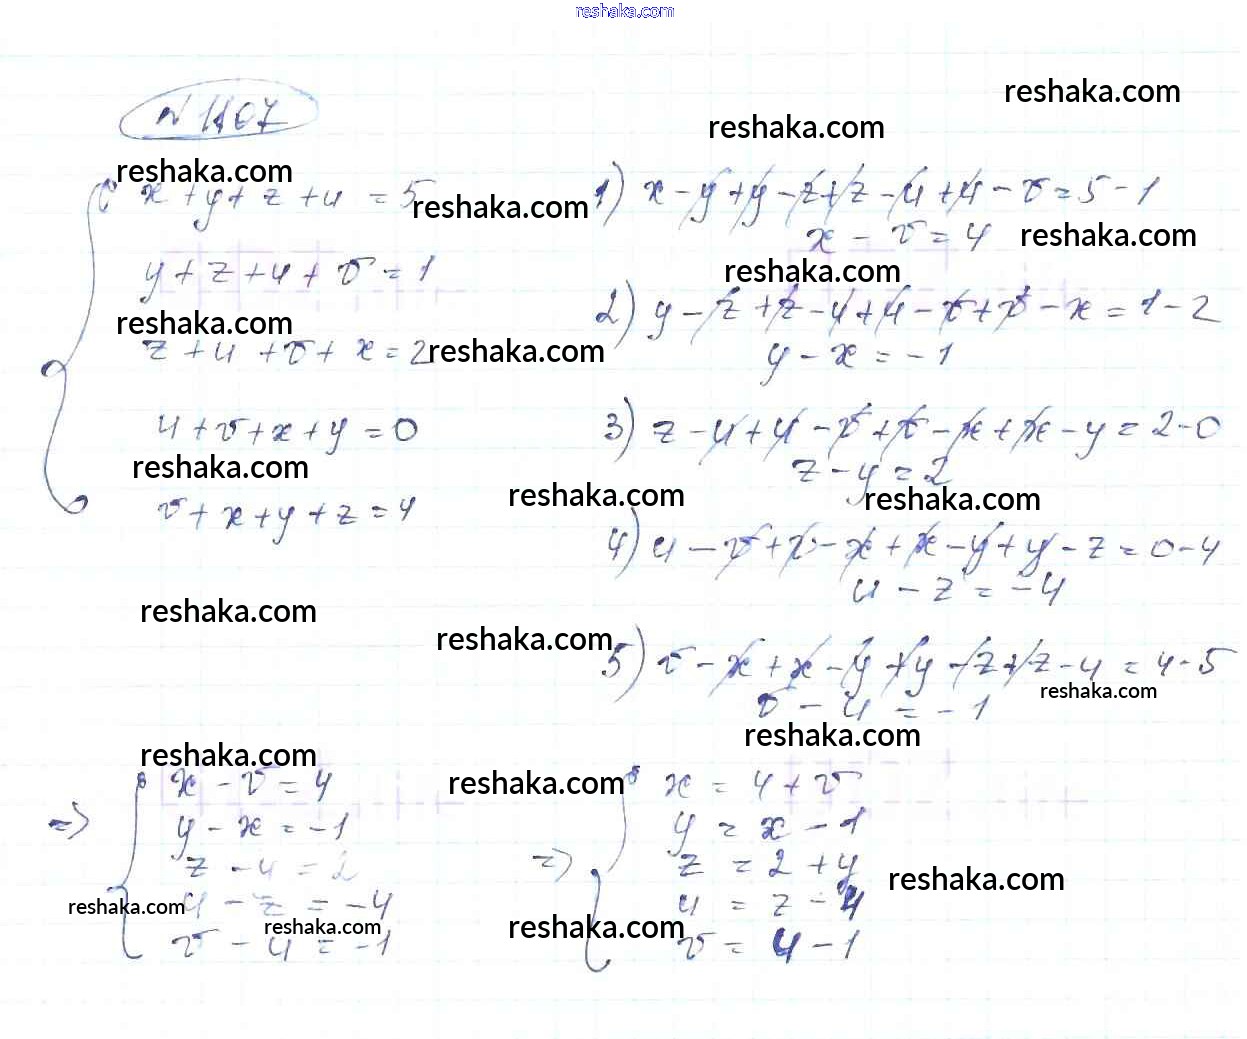 reshaka.com
№ 1107
reshaka.com
reshaka.com
reshaka.com
x + y + z + u = 5
reshaka.com
1) x - y + y - z + z - u + u - v = 5 - 1
x - v = 4
reshaka.com
y + z + u + v = 1
reshaka.com
2) y - z + z - u + u - v + v - x = 1 - 2
reshaka.com
z + u + v + x = 2
reshaka.com
y - x = -1
u + v + x + y = 0
3) z - u + u - v + v - x + x - y = 2 - 0
reshaka.com
z - y = 2
reshaka.com
reshaka.com
v + x + y + z = 4
4) u - v + v - x + x - y + y - z = 0 - 4
u - z = -4
reshaka.com
reshaka.com
5) v - x + x - y + y - z + z - u = 4 - 5
reshaka.com
v - u = -1
reshaka.com
reshaka.com
reshaka.com
=> x - v = 4
y - x = -1
z - y = 2
u - z = -4
v - u = -1
reshaka.com
reshaka.com
=> x = 4 + v
y = x - 1
z = 2 + y
u = z - 4
v = u - 1
reshaka.com
reshaka.com